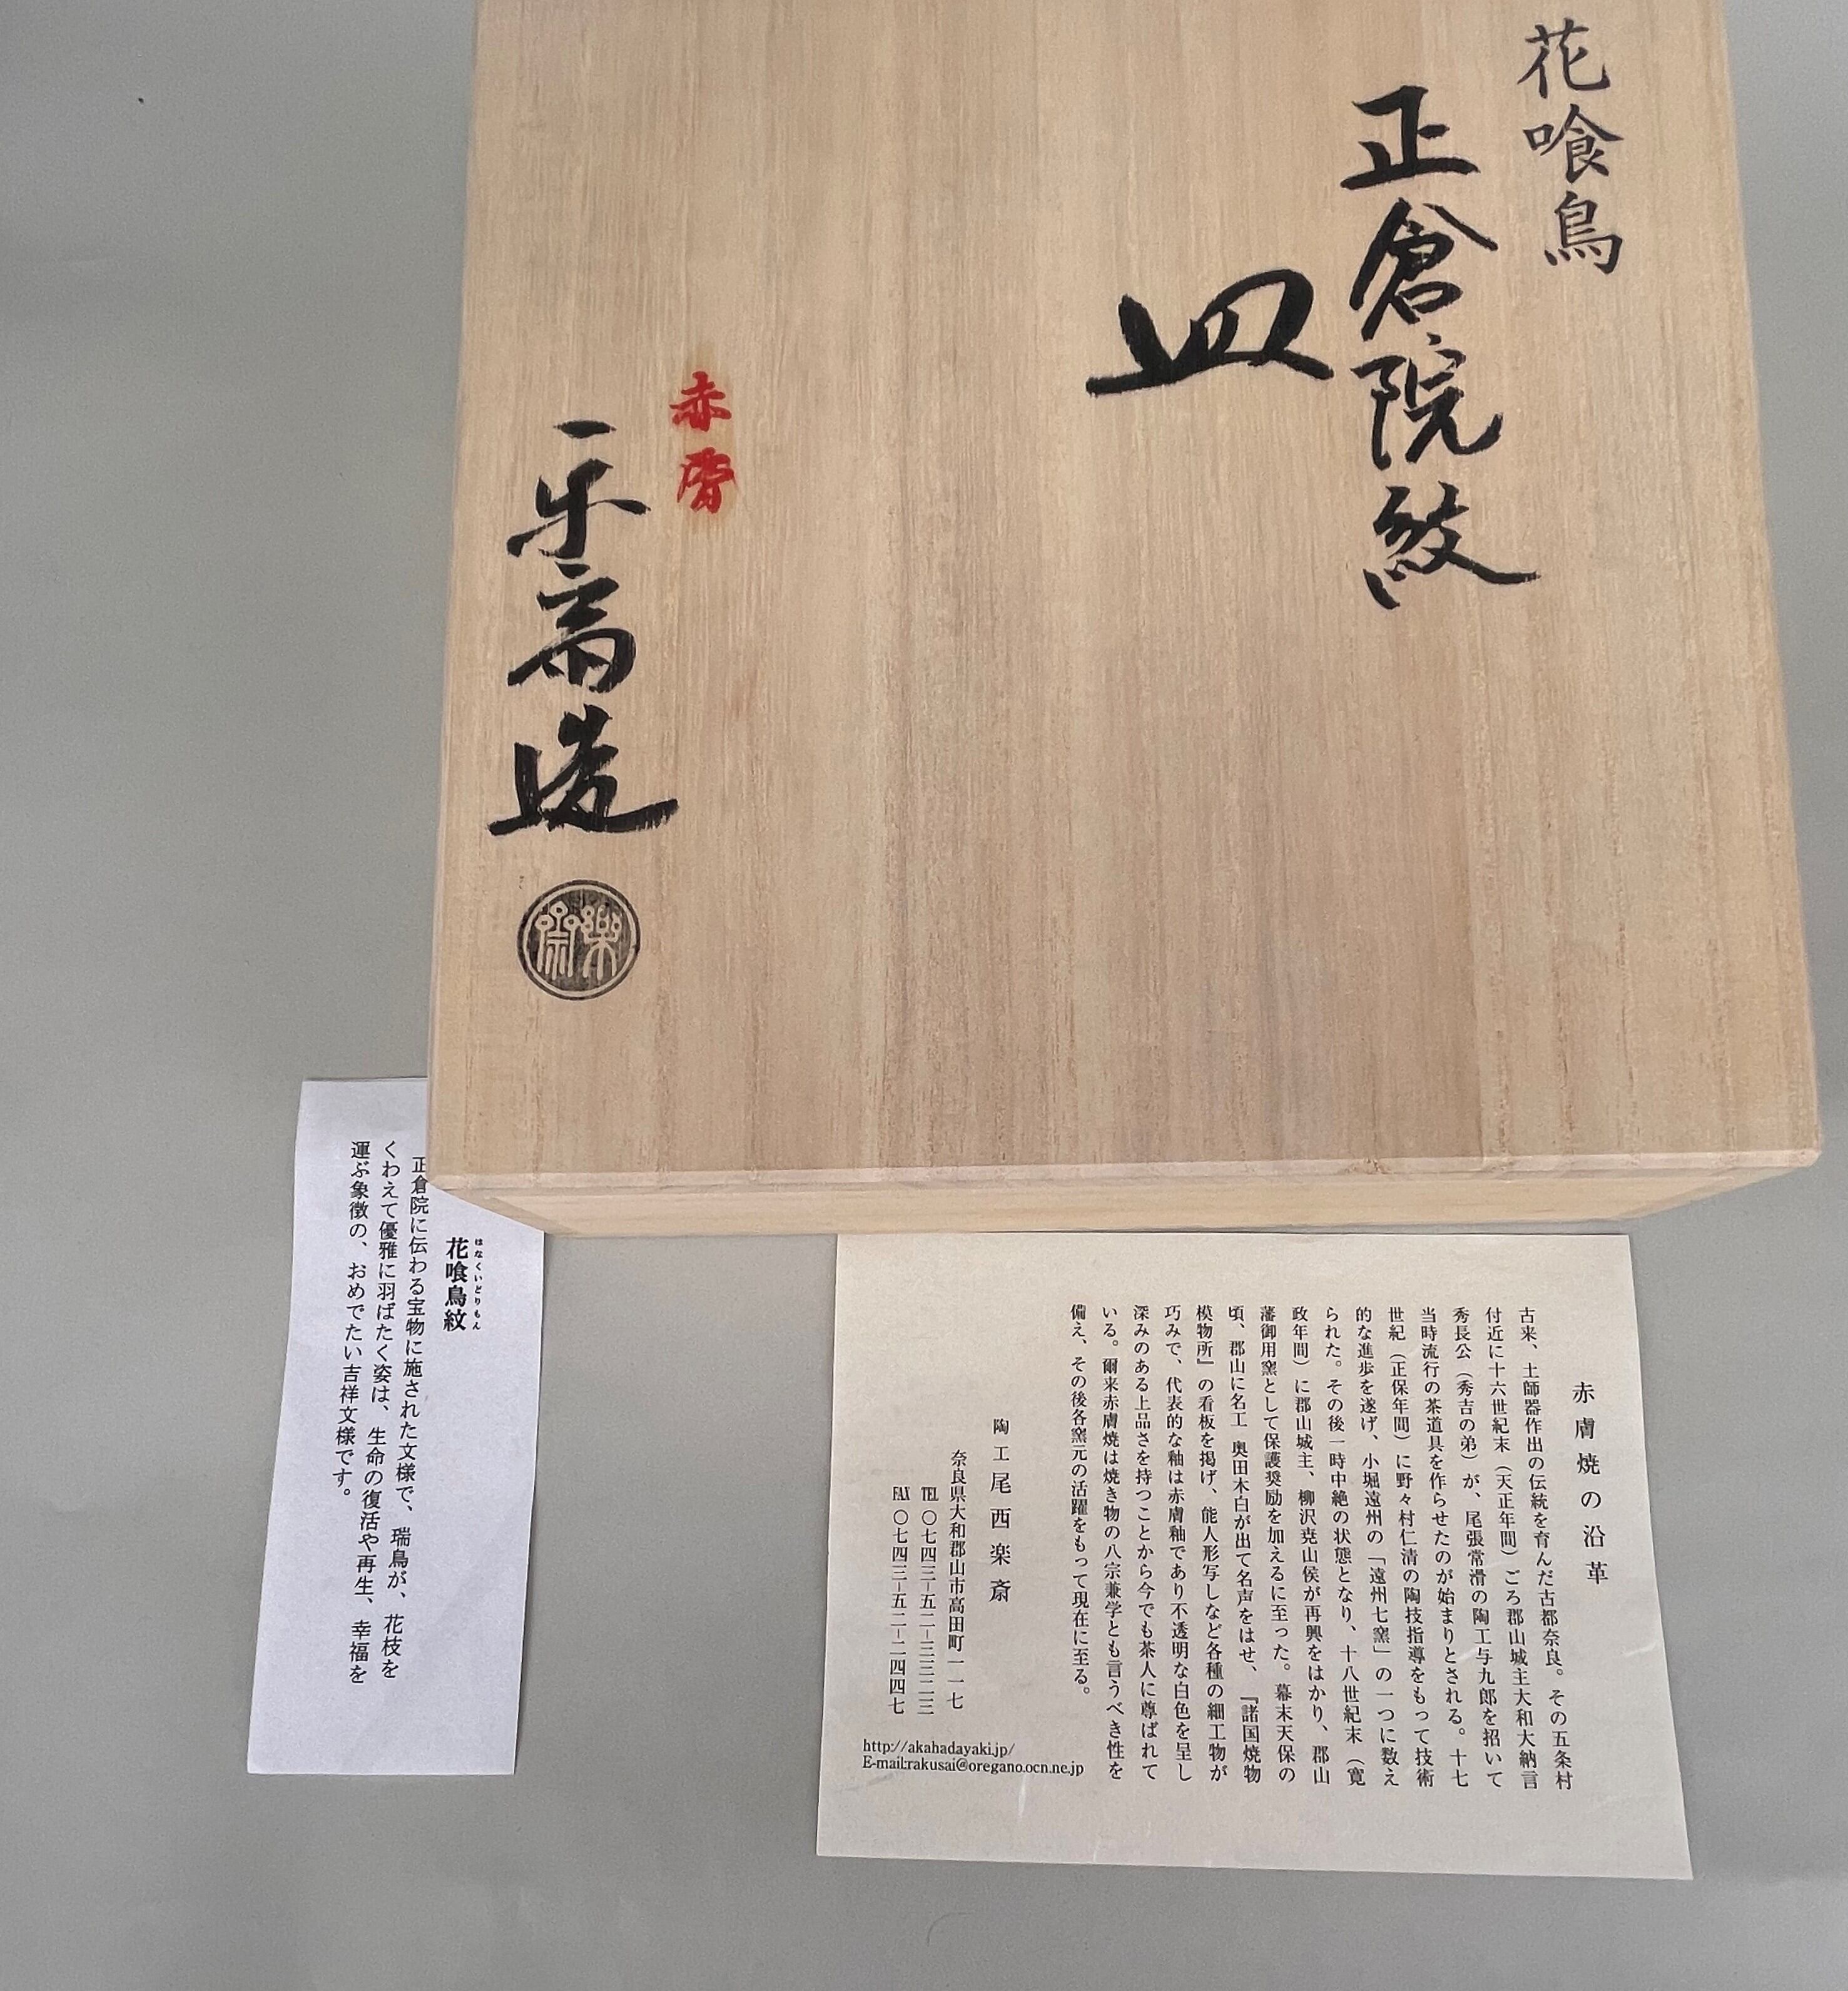 花喰鳥
正倉院紋
皿
赤膚
楽斎造
赤膚焼の沿革
古来、土師器作出の伝統を育んだ古都奈良。その五条村
付近に十六世紀末（天正年間）ごろ郡山城主大和大納言
秀長公（秀吉の弟）が、尾張常滑の陶工与九郎を招いて
当時流行の茶道具を作らせたのが始まりとされる。十七
世紀（正保年間）に野々村仁清の陶技指導をもって技術
的な進歩を遂げ、小堀遠州の「遠州七窯」の一つに数え
られた。その後一時中絶の状態となり、十八世紀末（寛
政年間）に郡山城主、柳沢尭山侯が再興をはかり、郡山
藩御用窯として保護奨励を加えるに至った。幕末天保の
頃、郡山に名工 奥田木白が出て名声をはせ、『諸国焼物
模物所』の看板を掲げ、能人形写しなど各種の細工物が
巧みで、代表的な釉は赤膚釉であり不透明な白色を呈し
深みのある上品さを持つことから今でも茶人に尊ばれて
いる。爾来赤膚焼は焼き物の八宗兼学とも言うべき性を
備え、その後各窯元の活躍をもって現在に至る。
陶工 尾西楽斎
奈良県大和郡山市高田町一一七
TEL 〇七四三−五二−三三二三
FAX 〇七四三−五二−二四四七
http://akahadayaki.jp/
E-mail:rakusai@oregano.ocn.ne.jp
はなくいどりもん
花喰鳥紋
正倉院に伝わる宝物に施された文様で、瑞鳥が、花枝を
くわえて優雅に羽ばたく姿は、生命の復活や再生、幸福を
運ぶ象徴の、おめでたい吉祥文様です。